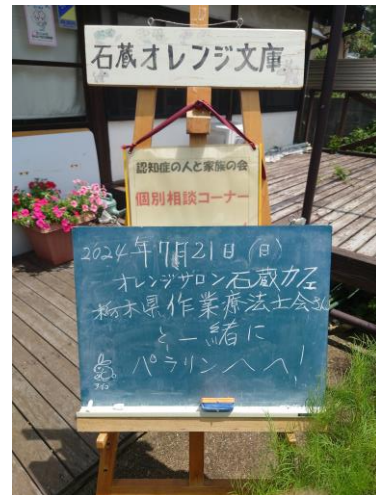 石蔵オレンジ文庫
認知症の人と家族の会
個別相談コーナー
2024年7月21日(日)
オレンジサロン石蔵カフェ
栃木県作業療法士会さん
と一緒に
パラリンへへ!